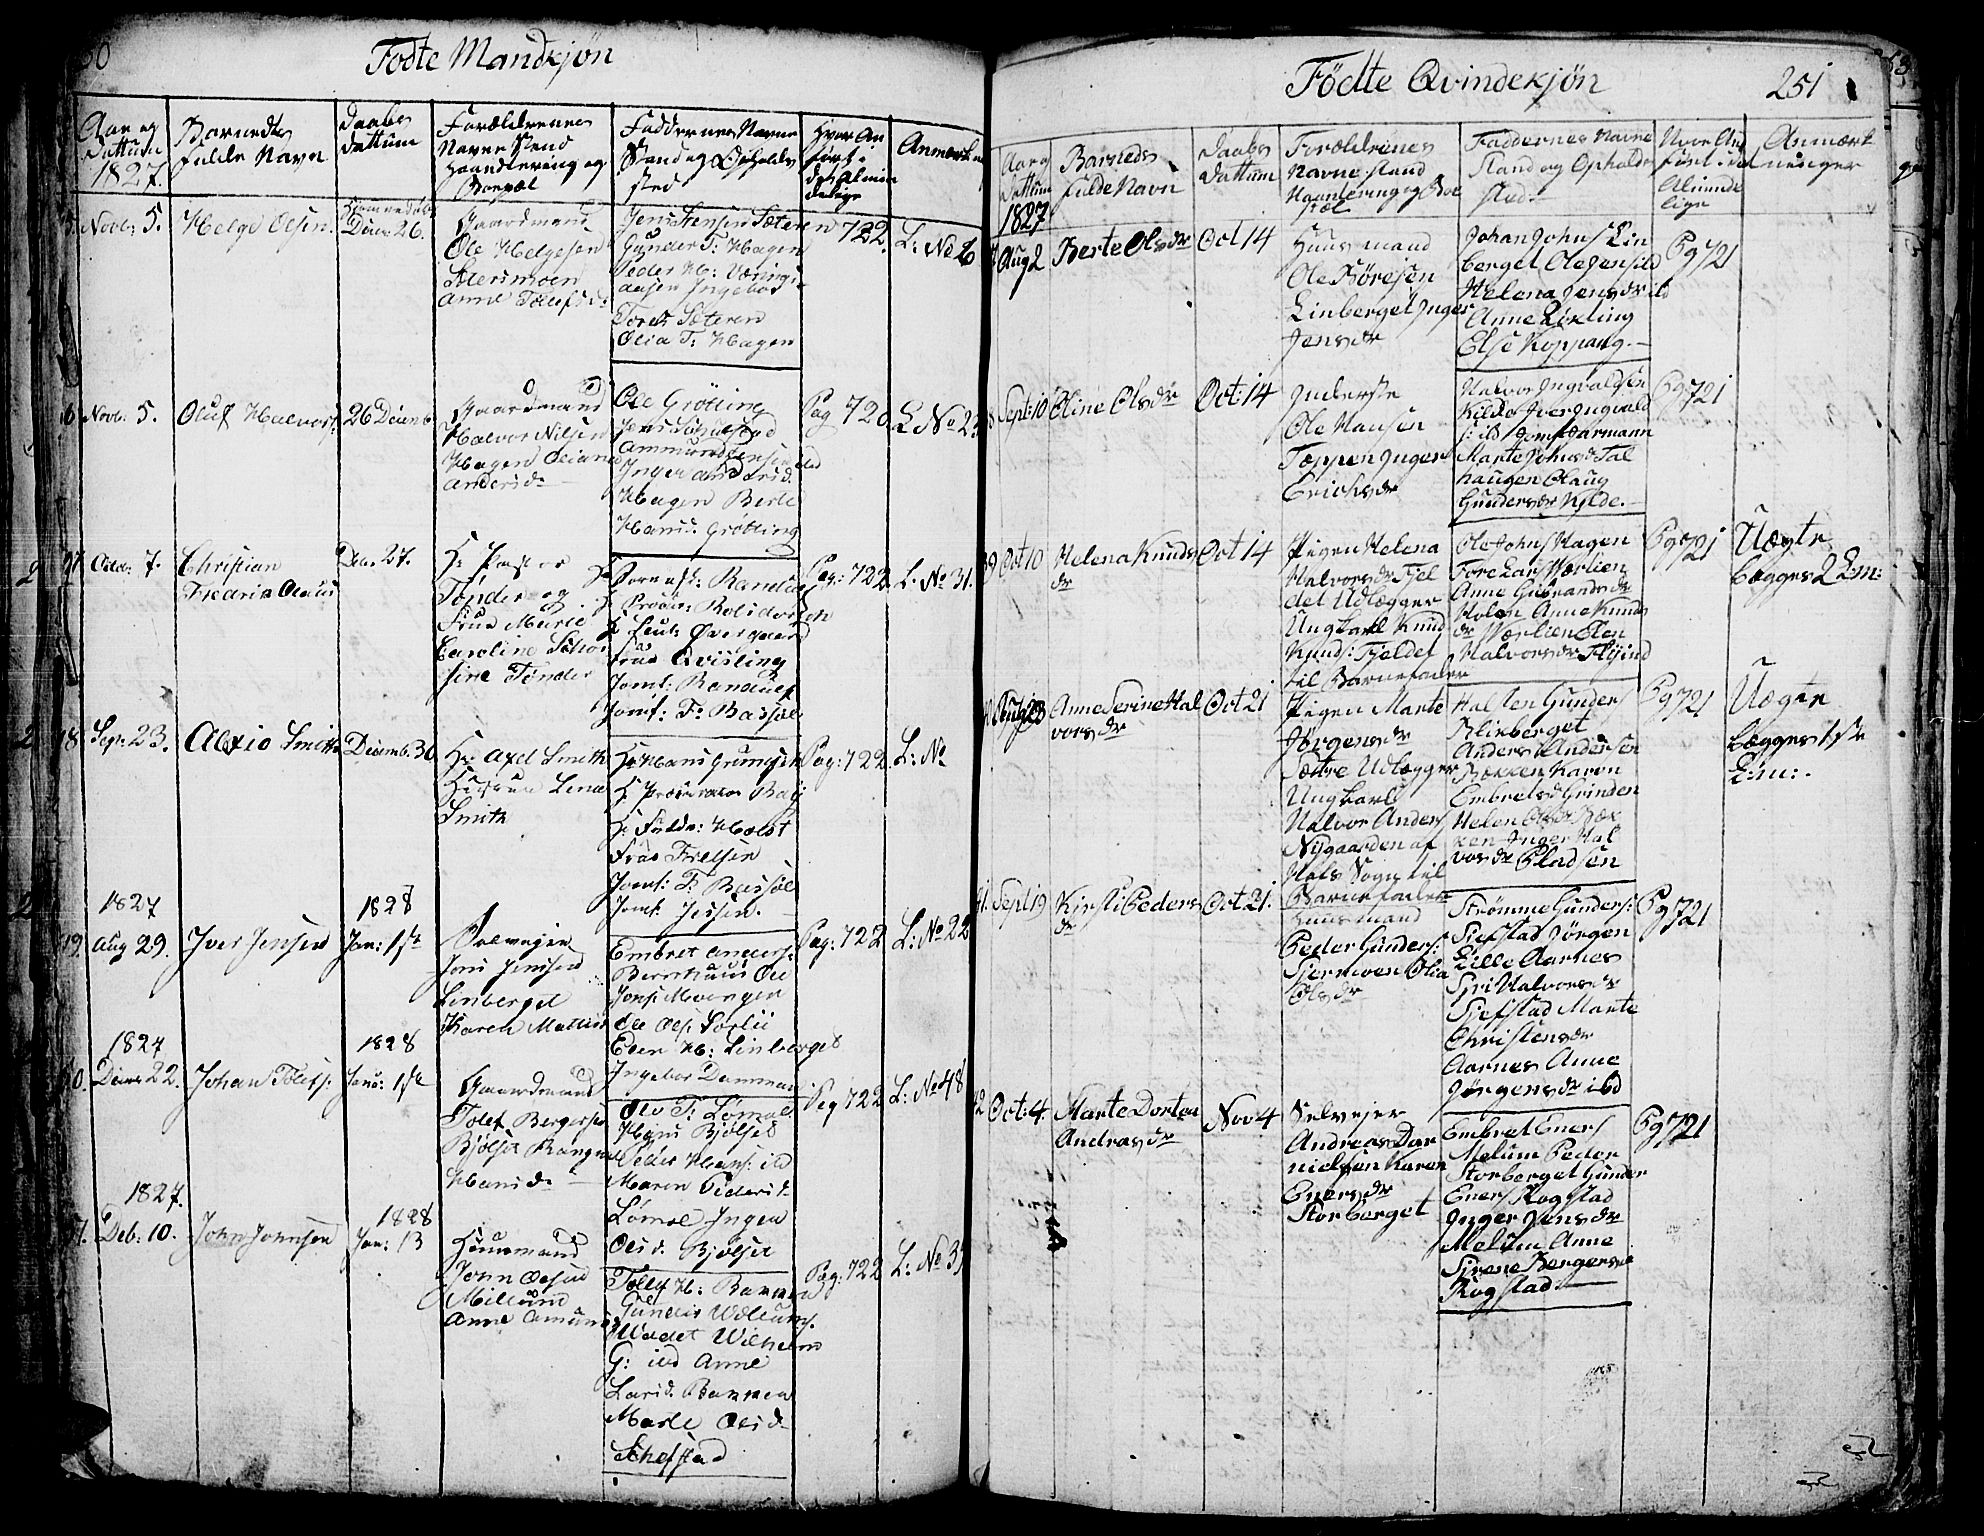 Fødte Mandkjøn
Aar og
Dattum
1827.
Barnedts
fulde Navn
Daabs
Dattum
Forældrenes
Navne Stend
Haandtering og
Boepæl
Faddernes Navne
Stand og Opholds
sted
Hvor An
ført i
det Almin
delige
Anmærk
Novb: 5.
Helge Olsen.
Decem 26.
Gaardmand
Ole Helgesen
Stersmoen
Anne Tollefsd:
Jens Jensen Sæteren
Gunder T: Hagen
Peder H: Værings
aasen Ingebor
Tores: Sæteren
Olia T: Hagen
722.
L: No 6
Novb: 5.
Oluf Halvors:
26 Decemb
Gaardmand
Halvor Nilsen
Hagen Oliana
Andersd:
Ole Grøtting
Jens Schulstad
Ammund Jensen ibd
Inger Andersd:
Hagen Berte
Hansd: Grøtting
Pag 720
L No 23
Octbr: 7.
Christian
Fredrik Olaus
Dec. 27.
Hr Pastor
Tønder og
Frue Marie
Caroline Seho
sine Tønder
Fru Qvisling
Jomf: F: Bassøe
Pag: 722
L: No 31.
18
Sept: 23.
Alexio Smith
Decemb. 30
Hr: Axel Smith
Hustrue Lena
Smith
Hr Hans Grumsen
Hr Procurator
Hr Fuldm: Holst
Frue Frelsen
Jomf: F: Bassøe
Jomf: Jessen.
Pag: 722
L: No
1827
Aug 29.
Iver Jensen
1828
Jan: 1ste
Selveyer
Jens Jensen
Linberget
Karen Mattis
Embret Anders:
Berntsuus Ole
Jens: Moengen
Ole Ols: Sørlie
Elen H: Linberget
Ingebor Dammen
Pag: 722
L: No 22
1827
Decem 22.
Johan Tollefs:
1828
Janu: 1ste
Gaardmand
Tolef Bergersen
Bjølset Rangne
Hansd:
Ole T: Lømoe
Hans Bjølset
Peder Hans: ibd
Maren Pedersd:
Lømoe Ingen
Olsd: Bjølset
Pag 722
L: No 48
1827.
Deb: 10.
John Johnsen
1828
Jan: 13
Huusmand
John Olsen
Millund
Anne Amunds
Tollef H: Bakken
Gunder Willums.
Mødet Wilhelm
G: ibd Anne
Larsd: Bakken
Marte Olsd:
Schefstad
Pag: 722
L: No 3
Fødte Qvindekjøn
251
Aar og
Dattum
1827
Barneds
fulde Navn
Daabs
Dattum
Forældrenes
Navne stand
Haantering og Boe
pæl
Faddernes Navne
Stand og Opholds
sted
Hvor An
ført i de
Alminde
lige
Anmærk
ninger
Aug 2
Berte Olsdr
Oct 14
Huusmand
Ole Børesen
Linberget Inger
Jensdr
Johan Johns: Lin
berget Ole Jens: ibd
Helena Jensdr ibd
Anne Løkting
Else Koppang.
Pg 721
Sept: 10
Oline Olsdr
Oct: 14
Inderste
Ole Hansen
Tøppen Inger
Ericksdr
Halvor Ingvaldsen
Kilde Iver Ingvald
s: ibd Joms Aarmann
Marte Johnsd: Tal
haugen Olaug
Gundersdr Kilde.
Pg 721
39
Oct 10
Helena Knuds
dr
Oct 14
Pigen Helena
Halvorsdr Fjel
det Udlægger
Ungkarl Knud
Knuds: Fjeldet
til Barnefader
Ole Johns: Hagen
Tore Lars: Værlien
Anne Gulbrandsdr
Holen Anne Knuds
dr Værlien Elen
Halvorsdr Flyind
Pg 721
Uægte
begges 2 L:m:
Aug 23
Anne Serine Hal
vorsdr
Oct 21
Pigen Marte
Jørgensdr
Sætre Udlægger
Ungkarl
Halvor Anders:
Nygaarden af
Hofs Sogn til
Barnefader
Halsten Gunders:
Klinberget
Anders Andersen
Bækken Karen
Embretsd: Grinden
Helen Olsdr Bæk
ken Inger Hal
vorsdr Pladsen
Pg 721
Uægte
begges 1ste
L:m:.
41.
Sept 19
Kirsti Peders
dr
Oct 21.
Huusmand
Peder Gunders:
Sjermoen Olia
Olsdr
Strømme Gunders:
Sjefstad Jørgen
Lille Aarnes
Siri Halvorsdr
Sjefstad Marte
Christensdr
Aarnes Anne
Jørgensdr ibd
Pg 721
42
Oct: 4
Marte Dortea
Andreasdr
Nov 4
Selvejer
Andreas Dan
nielsen Karen
Enersdr
Storberget
Embret Eners:
Melum Peder
Storberget Gunder
Eners: Rogstad
Inger Jensdr
Melum Anne
Sirene Bergersd
Rogstad.
Pg 721